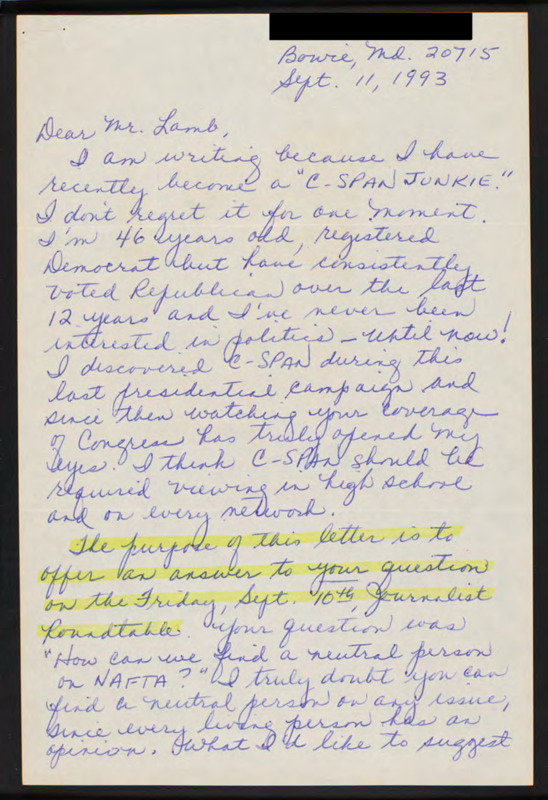 Bowie, Md. 20715
Sept. 11, 1993
Dear Mr. Lamb,
I am writing because I have
recently become a "C-SPAN JUNKIE."
I don't regret it for one moment.
I'm 46 years old, registered
Democrat but have consistently
voted Republican over the last
12 years and I've never been
interested in politics - until now!
I discovered C-SPAN during this
last presidential campaign and
since then watching your coverage
of Congress has truly opened my
eyes. I think C-SPAN should be
required viewing in high school
and on every network.
The purpose of this letter is to
offer an answer to your question
on the Friday, Sept. 10th, Journalist
Roundtable. Your question was
"How can we find a neutral person
on NAFTA?" I truly doubt you can
find a neutral person on any issue,
since every living person has an
opinion. What I'd like to suggest